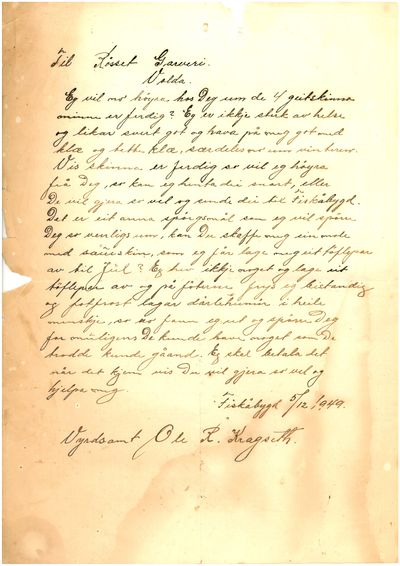 Til Rösset Garveri.
Volda.
Eg vil no höyra hos Deg um de 4 geitskinna
mine er ferdig? Eg er ikkje sterk av helse
og likar svert got og hava på meg got med
klæ og tette klæ, særdeles no um vinteren.
Vis skinna er ferdig so vil eg höyra
frå Deg, so kan eg henta dei snart, eller
De vil gjera so vel og sende dei til Fiskåbygd.
Det er eit anna spörgsmål som eg vil spöre
Deg so venligs um, kan Du skaffe meg ein
med saueskin, som eg får lage meg ut töflepar
av til Jul? Eg hev ikkje noget og lage ut
töflepar av og på föterne frys eg
og fotfrost lagar dårlethumör i heile
mennskje, so no fann eg ut og spöre Deg
for muligens De kunde have noget som De
trodde kunde gåand. Eg skal betala det
når det kjem vis Du vil gjera so vel og
hjelpa meg.
Fiskåbygd 5/12 1949.
Vyrdsamt Ole R. Kragseth.